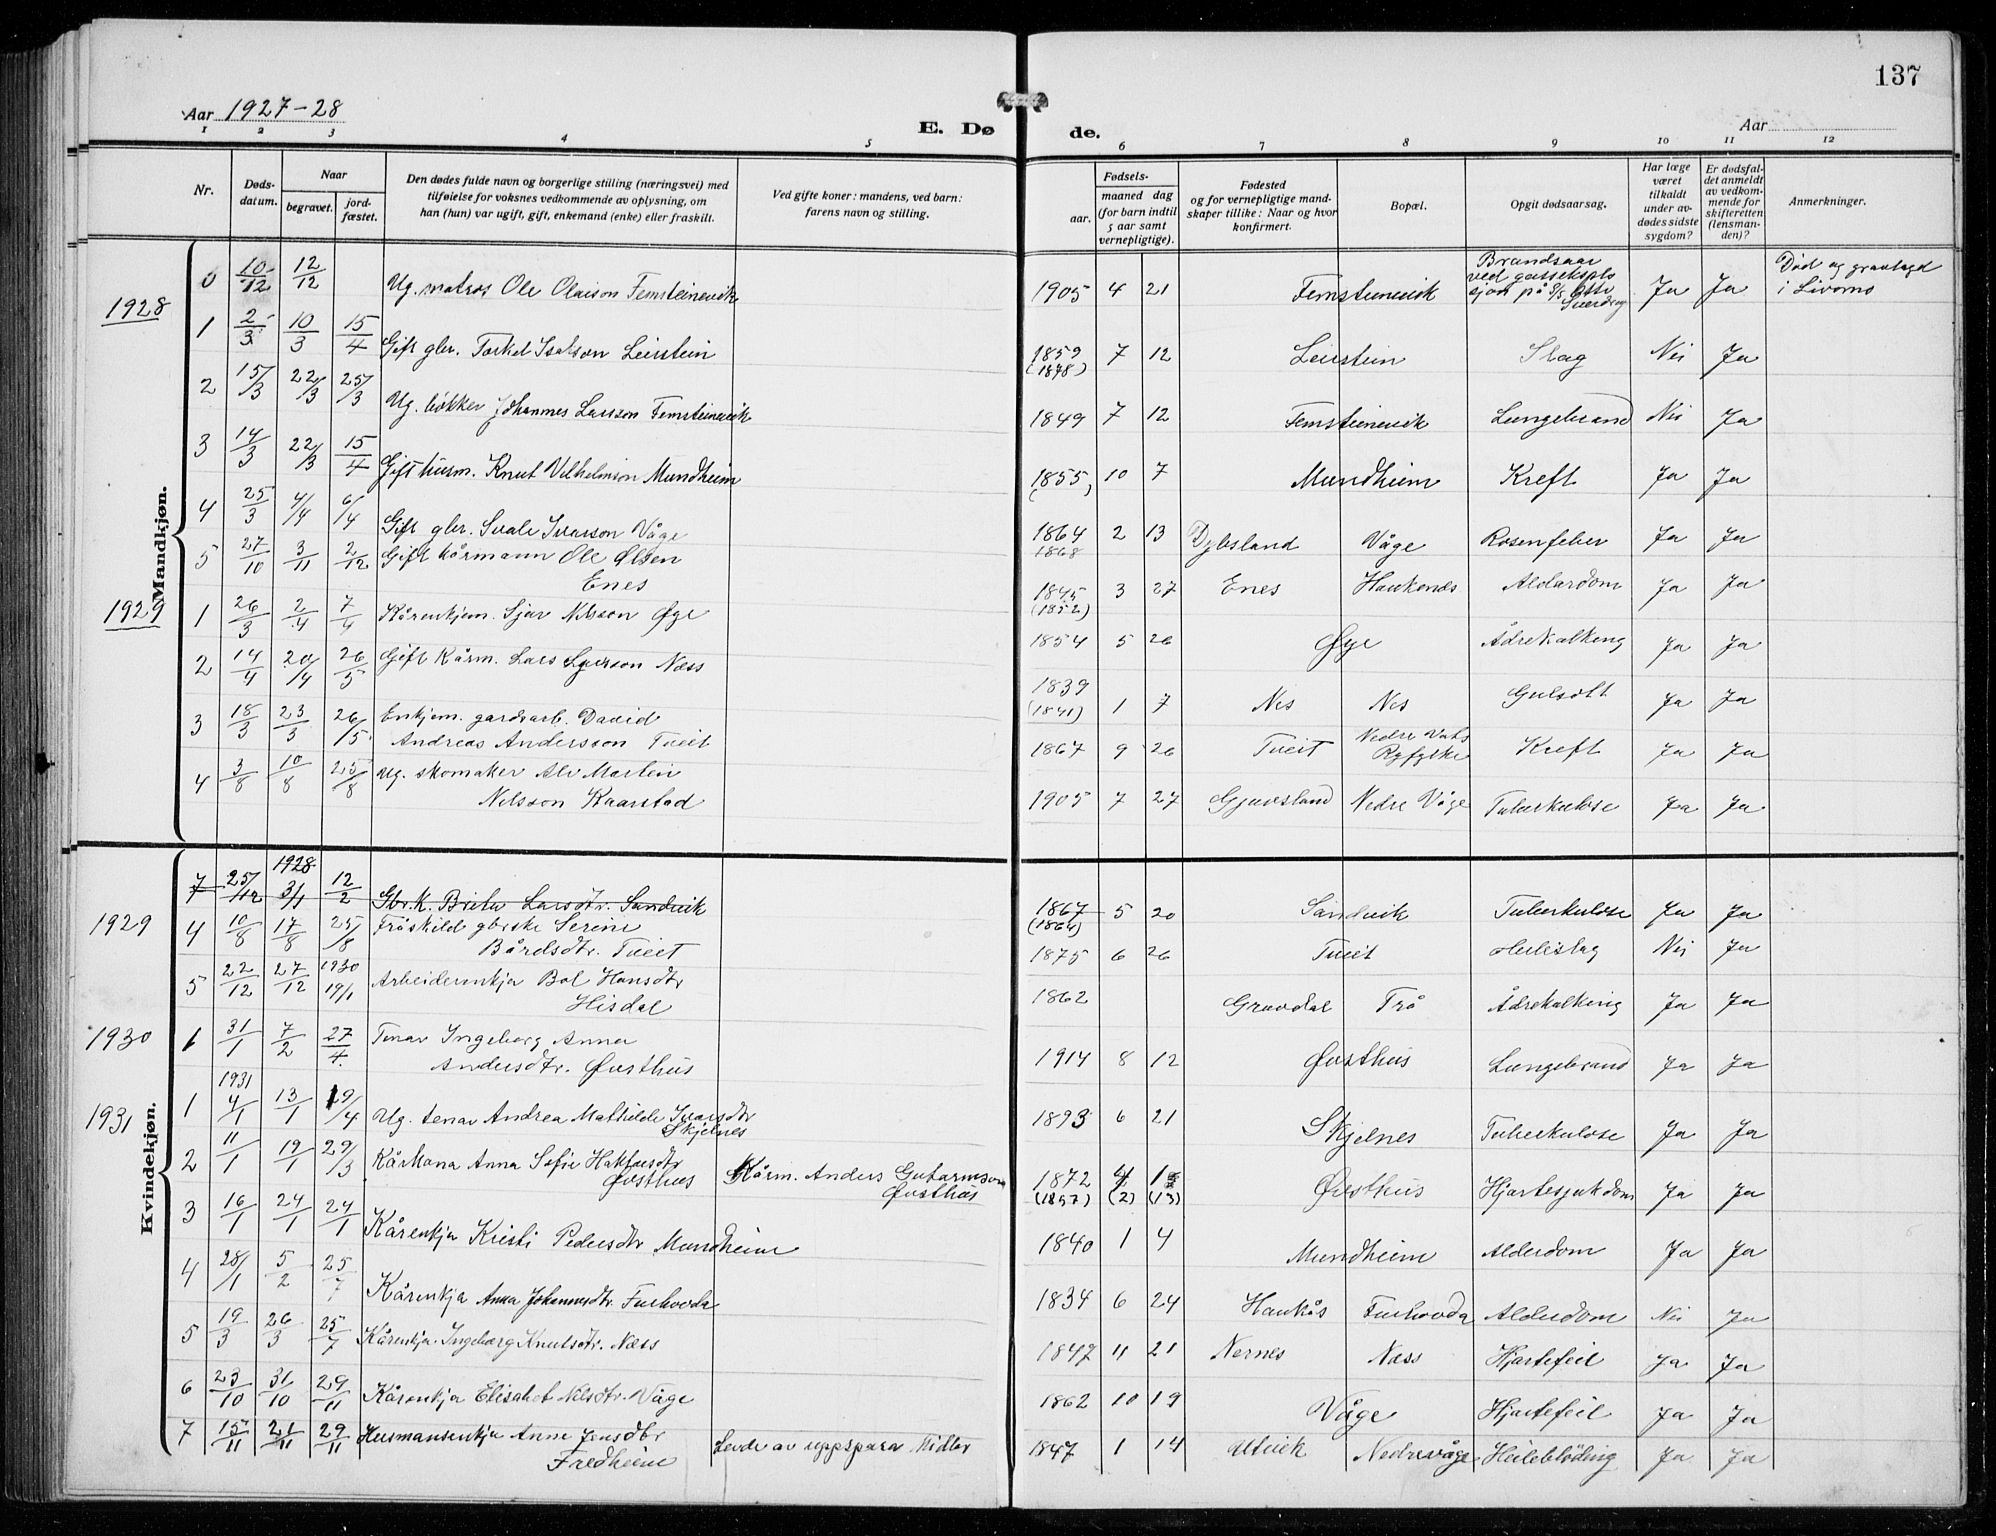 137
Aar 1927-28
E. Døde.
Aar
1 2 3 4 5 6 7 8 9 10 11 12
Nr.
Døds-datum.
Naar
begravet.
jord-fæstet.
Den dødes fulde navn og borgerlige stilling (næringsvei) med
tilføielse for voksnes vedkommende av oplysning, om
han (hun) var ugift, gift, enkemand (enke) eller fraskilt.
Ved gifte koner: mandens, ved barn:
farens navn og stilling.
Fødsels-
aar.
maaned dag
(for barn indtil
5 aar samt
vernepligtige).
Fødested
og for vernepligtige mand-
skaper tillike: Naar og hvor
konfirmert.
Bopæl.
Opgit dødsaarsag.
Har læge
været
tilkaldt
under av-
dødes sidste
sygdom?
Er dødsfal-
det anmeldt
av vedkom-
mende for
skifteretten
(lensman-
den)?
Anmerkninger.
Mandkjøn.
0 10/12 12/12 Ug. matros Ole Olaison Femsteinevik 1905 4 21 Femsteinevik Brandsaar ved gasseksplosjon på S/S Otto Sverdrup Ja Ja Død og gravlagd i Livorno
1928
1 2/3 10/3 15/4 Gift gbr. Torkel Isakson Leirstein 1859 (1848) 7 12 Leirstein Slag Nei Ja
2 15/3 22/3 25/3 Ug. bøkker Johannes Larsson Femsteinevik 1849 7 12 Femsteinevik Lungebrand Nei Ja
3 14/3 22/3 15/4 Gift husm. Knut Vilhelmson Mundheim 1855 10 7 Mundheim Kreft Ja Ja
4 25/3 4/4 6/4 Gift gbr. Svale Ivarson Våge 1864 1868 2 13 Dybsland Våge Rosenfeber Ja Ja
5 27/10 3/11 2/12 Gift kårmann Ole Olsen
Enes 1845 (1852) 3 27 Enes Haukenes Aldardom Ja Ja
1929
1 26/3 2/4 7/4 Kårenkjem. Sjur Nilsson Øye 1854 5 26 Øye Ådrekalking Ja Ja
2 14/4 20/4 26/5 Gift Kårm. Lars Næss 1839 (1841) 1 7 Nes Nes Gulsott Ja Ja
3 18/3 23/3 26/5 Enkjem. gardsarb. David
Andreas Andersson Tveit 1867 9 26 Tveit Nedre Vats Ryfylke Kreft Ja Ja
4 3/8 10/8 25/8 Ug. skomaker Alv Martin
Nilsson Kaarstad 1905 7 27 Gjuvsland Nedre Våge Tuberkulose Ja Ja
Kvindekjøn.
7 25/12 1928 3/1 12/2 Gbr.k. Brita Larsdtr. Sandvik 1867 (1864) 5 20 Sandvik Tuberkulose Ja Ja
1929
4 10/8 17/8 25/8 Fråskild gbrske Serine
Bårdsdtr. Tveit 1875 6 26 Tveit Heileslag Nei Ja
5 22/12 27/12 1930 19/1 Arbeiderenkja Bol Hansdtr
Hisdal 1862 Gravdal Trå Ådrekalking Ja Ja
1930
1 31/1 7/2 27/4 Tenar Ingeborg Anna
Andersdtr. Øvsthus 1914 8 12 Øvsthus Lungebrand Ja Ja
1931
1 1931 4/1 13/1 19/4 Ug. tenar Andrea Mathilde Ivarsdtr
Skjelnes 1893 6 21 Skjelnes Tuberkulose Ja Ja
2 11/1 19/1 29/3 Kårkona Anna Sofie
Øvsthus Kårm. Anders Gutormson
Øvsthus 1872 (1857) 4 (2) 1 (13) Øvsthus Hjartesjukdom Ja Ja
3 16/1 24/1 24/1 Kårenkja Kristi Pedersdtr Mundheim 1840 1 4 Mundheim Alderdom Ja Ja
4 28/1 5/2 25/7 Kårenkja Anna Johannesdtr. Furhovda 1834 6 24 Haukås Furhovda Alderdom Nei Ja
5 19/3 26/3 25/7 Kårenkja. Ingeborg Knutsdtr. Næss 1847 11 21 Nernes Næss Hjartefeil Ja Ja
6 23/10 31/10 29/11 Kårenkja Elisabet Nilsdtr. Våge 1862 10 19 Våge Hjartefeil Ja Ja
7 15/11 21/11 29/11 Husmansenkja Anne Jensdtr
Fredheim Levde av uppspara midlar 1847 1 14 Utvik Nedrevåge Heileblöding Ja Ja